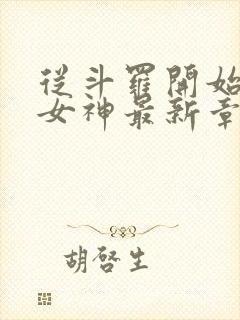 從斗羅開始
女神最新章
胡啓生